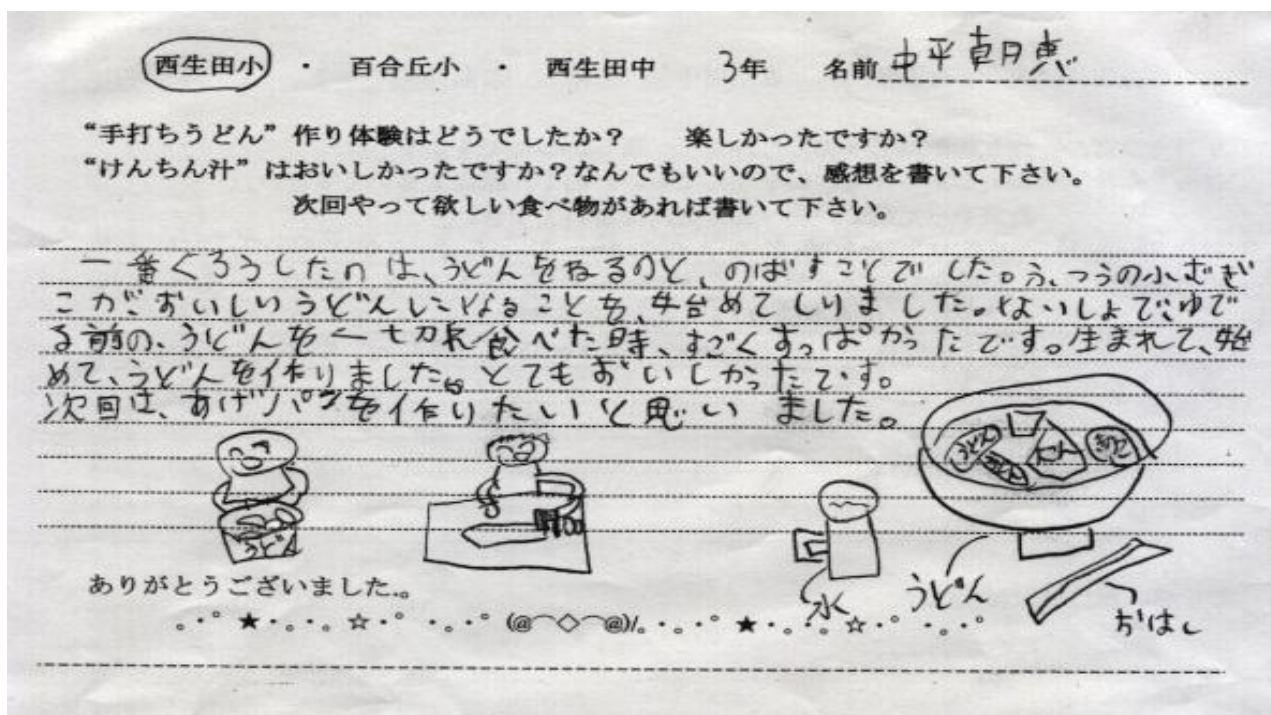 西生田小 ・ 百合丘小 ・ 西生田中 3年 名前 中平朝恵
“手打ちうどん”作り体験はどうでしたか？ 楽しかったですか？
“けんちん汁”はおいしかったですか？なんでもいいので、感想を書いて下さい。
次回やって欲しい食べ物があれば書いて下さい。
一番くろうしたのは、うどんをねるのと、のばすことでした。ふつうの小むぎ
こが、おいしいうどんになることを、始めてしりました。ないしょで、ゆで
る前の、うどんを一切れ食べた時、すごくすっぱかったです。生まれて、始
めて、うどんを作りました。とてもおいしかったです。
次回は、あげパンを作りたいと思いました。
うどん
きのこ
うど
水
うどん
おはし
ありがとうございました。。
。・゜★・。・。☆・゜・。・゜(@⌒◇⌒@)/。・。・゜★・。・。☆・゜・。・゜